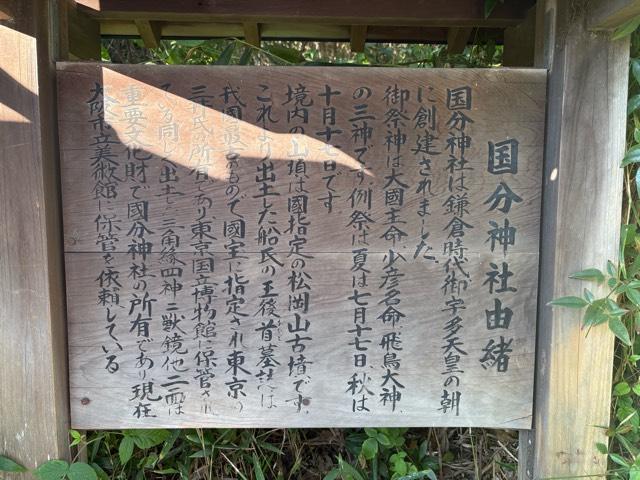 国分神社由緒
国分神社は鎌倉時代御宇多天皇の朝
に創建されました
御祭神は大國主命、少彦名命、飛鳥大神、
の三神です例祭は夏は七月十七日、秋は
十月十七日です
境内の山頂は國指定の松岡山古墳です。
これより出土した船氏の王後首墓誌は
我国最古のもので、國宝に指定され東京の
三井氏の所有であり東京国立博物館に保管され
ている同じく出土した三角縁四神二獣鏡他二面は
重要文化財で國分神社の所有であり現在
大阪市立美術館に保管を依頼している